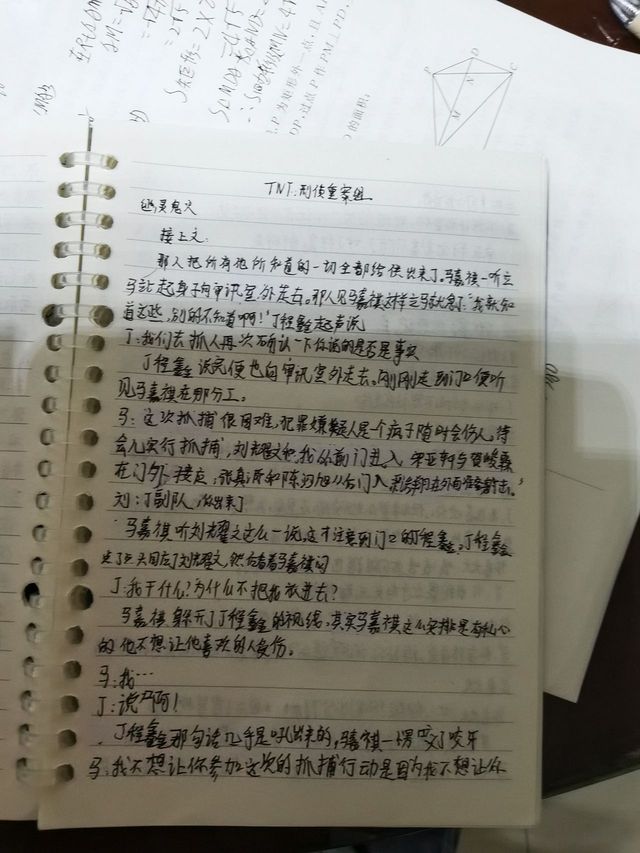 TNT:刑侦重案组
接上文:
那人把所有他所知道的一切全部给供出来了。马嘉祺一听立
马站起身子向审讯室外走去。那人见马嘉祺这样立马就急了"我就知
道这些,别的不知道啊!"丁程鑫起声说
丁:我们去抓人再次确认一下你说的是否是事实
丁程鑫说完便也向审讯室外走去。刚刚走到门口便听
见马嘉祺在那分工。
马:这次抓捕很困难,犯罪嫌疑人是个疯子随时会伤人,待
会儿实行抓捕,刘耀文和我从前门进入 宋亚轩与贺峻霖
在门外接应,张真源和陈泗旭从后门入 严浩翔在外面准备射击。
刘:丁副队,你出来了
马嘉祺听刘耀文这么一说,这才注意到门口的丁程鑫,丁程鑫
点了点头回应了刘耀文,然后看着马嘉祺问
丁:我干什么?为什么不把我放进去?
马嘉祺躲开了丁程鑫的视线,其实马嘉祺这么安排是有私心
的他不想让他喜欢的人受伤。
马:我…
丁:说啊!
丁程鑫那句话几乎是吼出来的,马嘉祺一愣咬了咬牙
马:我不想让你参加这次的抓捕行动是因为我不想让你
S四边形